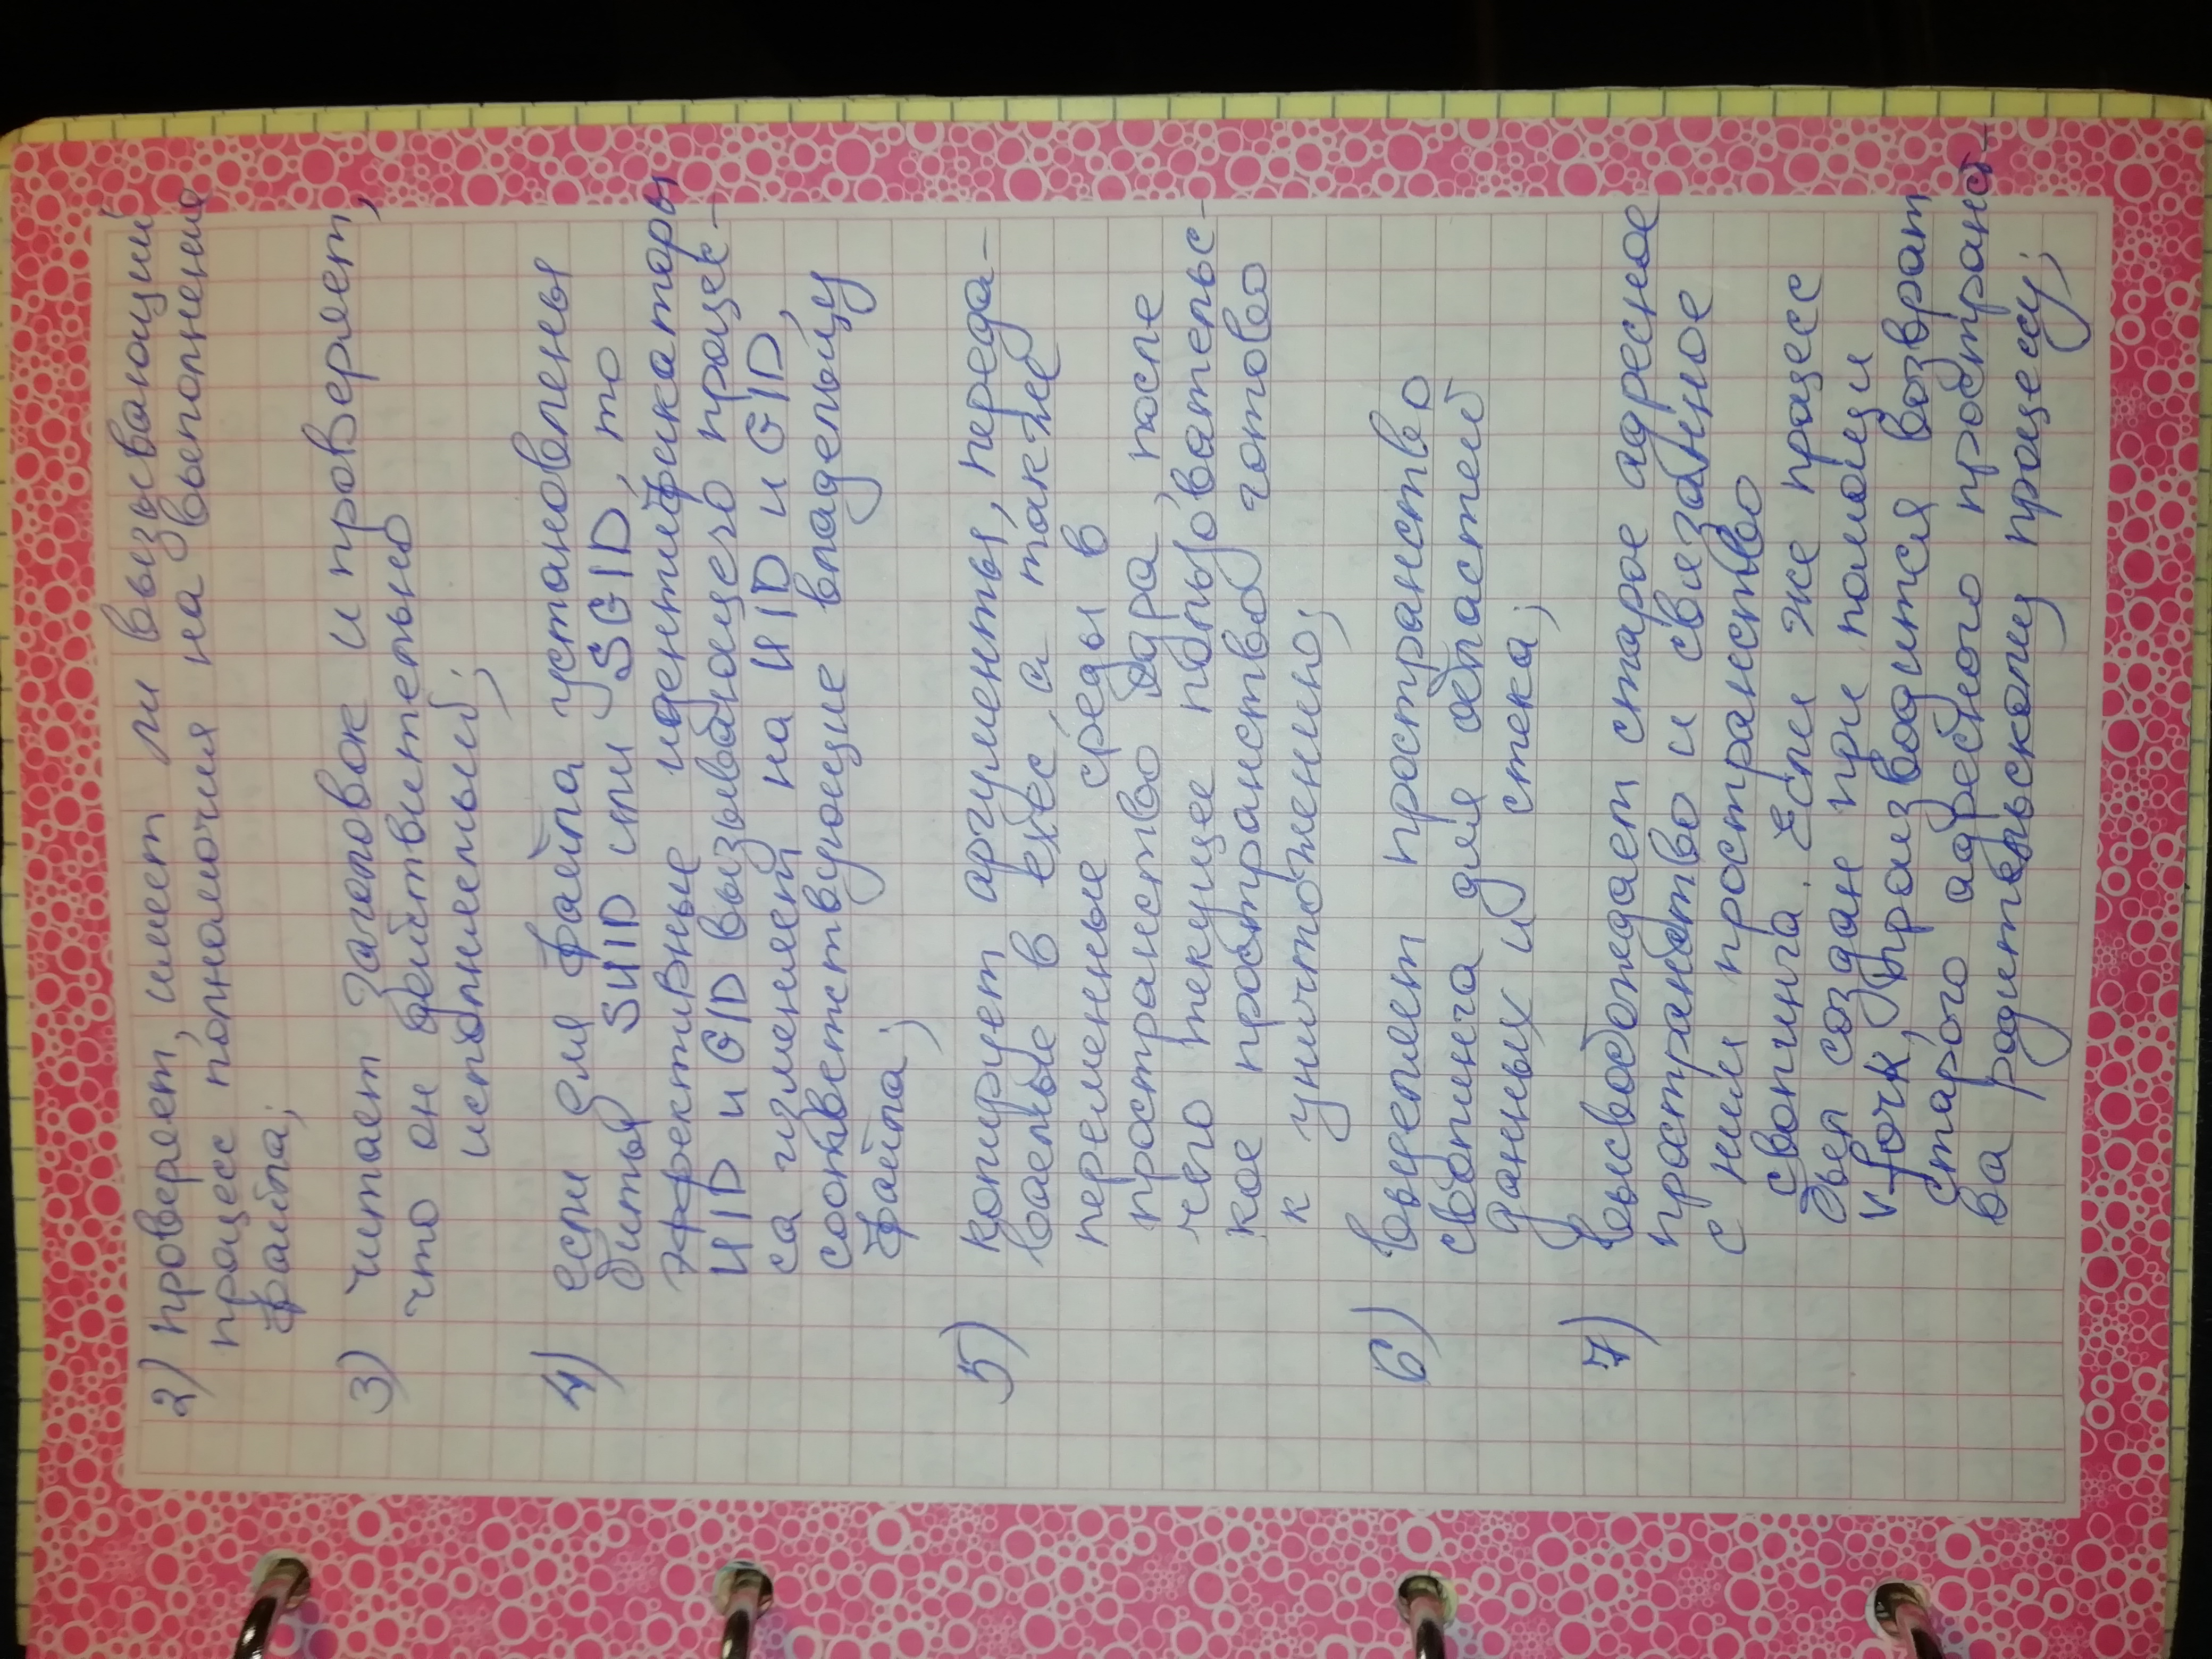 2) проверяет, имеет ли вызывающий
процесс полномочия на выполнение
файла;
3) читает заголовок и проверяет,
что он действительно
исполняемый;
4) если для файла установлены
биты SUID или SGID, то
эффективные идентификаторы
UID и GID вызывающего процес-
са изменяет на UID и GID,
соответствующие владельцу
файла;
5) копирует аргументы, переда-
ваемые в exec, а также
переменные среды в
пространство ядра, после
чего текущее пользовательс-
кое пространство готово
к уничтожению;
6) выделяет пространство
свопинга для областей
данных и стека;
7) высвобождает старое адресное
пространство и связанное
с ним пространство
свопинга. Если же процесс
был создан при помощи
vfork, производится возврат
старого адресного пространст-
ва родительскому процессу;